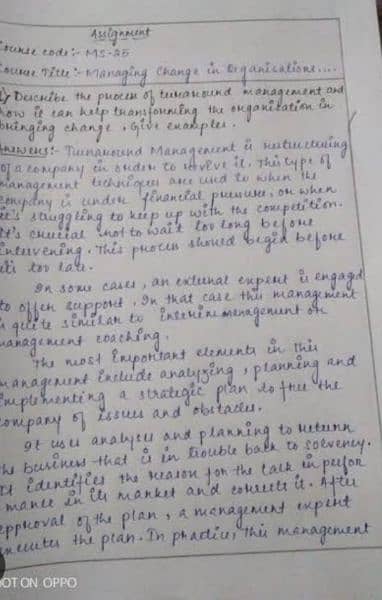 Assignment
Course code:- MS-25
Course Title:- Managing Change in Organisations....
Describe the process of turnaround management and
how it can help transforming the organisation in
bringing change. Give examples.
Answers:- Turnaround Management is restructuring
of a company in order to revive it. This type of
management techniques are used to when the
company is under financial pressure, or when
it's struggling to keep up with the competition.
It's crucial not to wait too long before
intervening. This process should begin before
it's too late.
In some cases, an external expert is engaged
to offer support. In that case this management
is quite similar to interim management or
management coaching.
The most important elements in this
management include analyzing, planning and
implementing a strategic plan to free the
company of issues and obstacles.
It uses analyses and planning to return
the business that is in trouble back to solvency.
It identifies the reason for the lack in perfor
mance in its market and corrects it. After
approval of the plan, a management expert
executes the plan. In practice, this management
SHOT ON OPPO